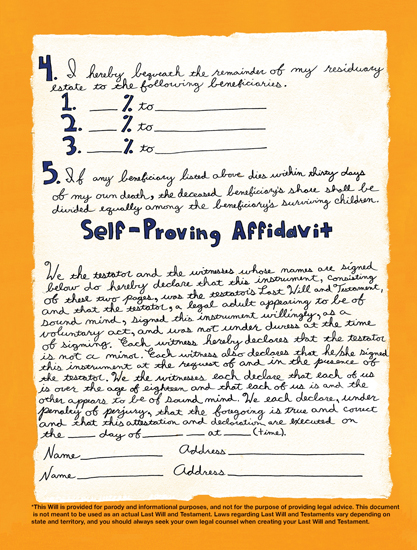 4. I hereby bequeath the remainder of my residuary
estate to the following beneficiaries.
1. ___ % to ___
2. ___ % to ___
3. ___ % to ___
5. If any beneficiary listed above dies within thirty days
of my own death, the deceased beneficiary's share shall be
divided equally among the beneficiary's surviving children.
Self-Proving Affidavit
We the testator and the witnesses whose names are signed
below do hereby declare that this instrument, consisting
of these two pages, was the testator's Last Will and Testament,
and that the testator, a legal adult appearing to be of
sound mind, signed this instrument willingly, as a
voluntary act, and was not under duress at the time
of signing. Each witness hereby declares that the testator
is not a minor. Each witness also declares that he/she signed
this instrument at the request of and in the presence of
the testator. We the witnesses, each declare that each of us
is over the age of eighteen and that each of us is and the
other appears to be of sound mind. We each declare, under
penalty of perjury, that the foregoing is true and correct
and that this attestation and declaration are executed on
the ___ day of ___ ___ at ___ (time).
Name ___ Address ___
Name ___ Address ___
*This Will is provided for parody and informational purposes, and not for the purpose of providing legal advice. This document
is not meant to be used as an actual Last Will and Testament. Laws regarding Last Will and Testaments vary depending on
state and territory, and you should always seek your own legal counsel when creating your Last Will and Testament.